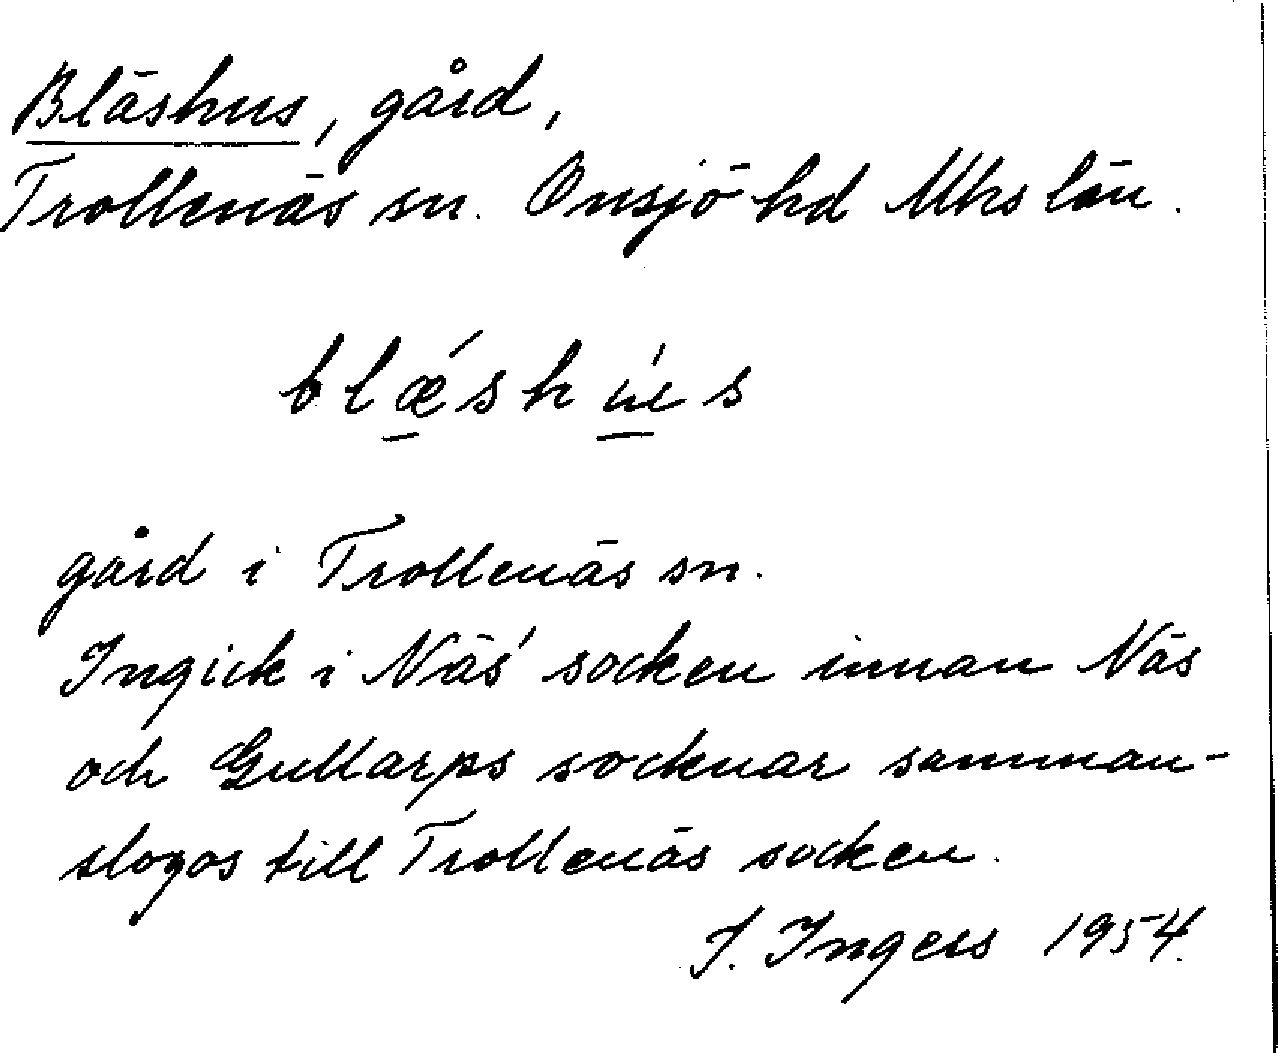 Bläshus, gård,
Trollenäs sn. Onsjö hd Mhs län.
blǽshús
gård i Trollenäs sn.
Ingick i Näs' socken innan Näs
och Gullarps socknar samman-
slogos till Trollenäs socken.
I. Ingers 1954.